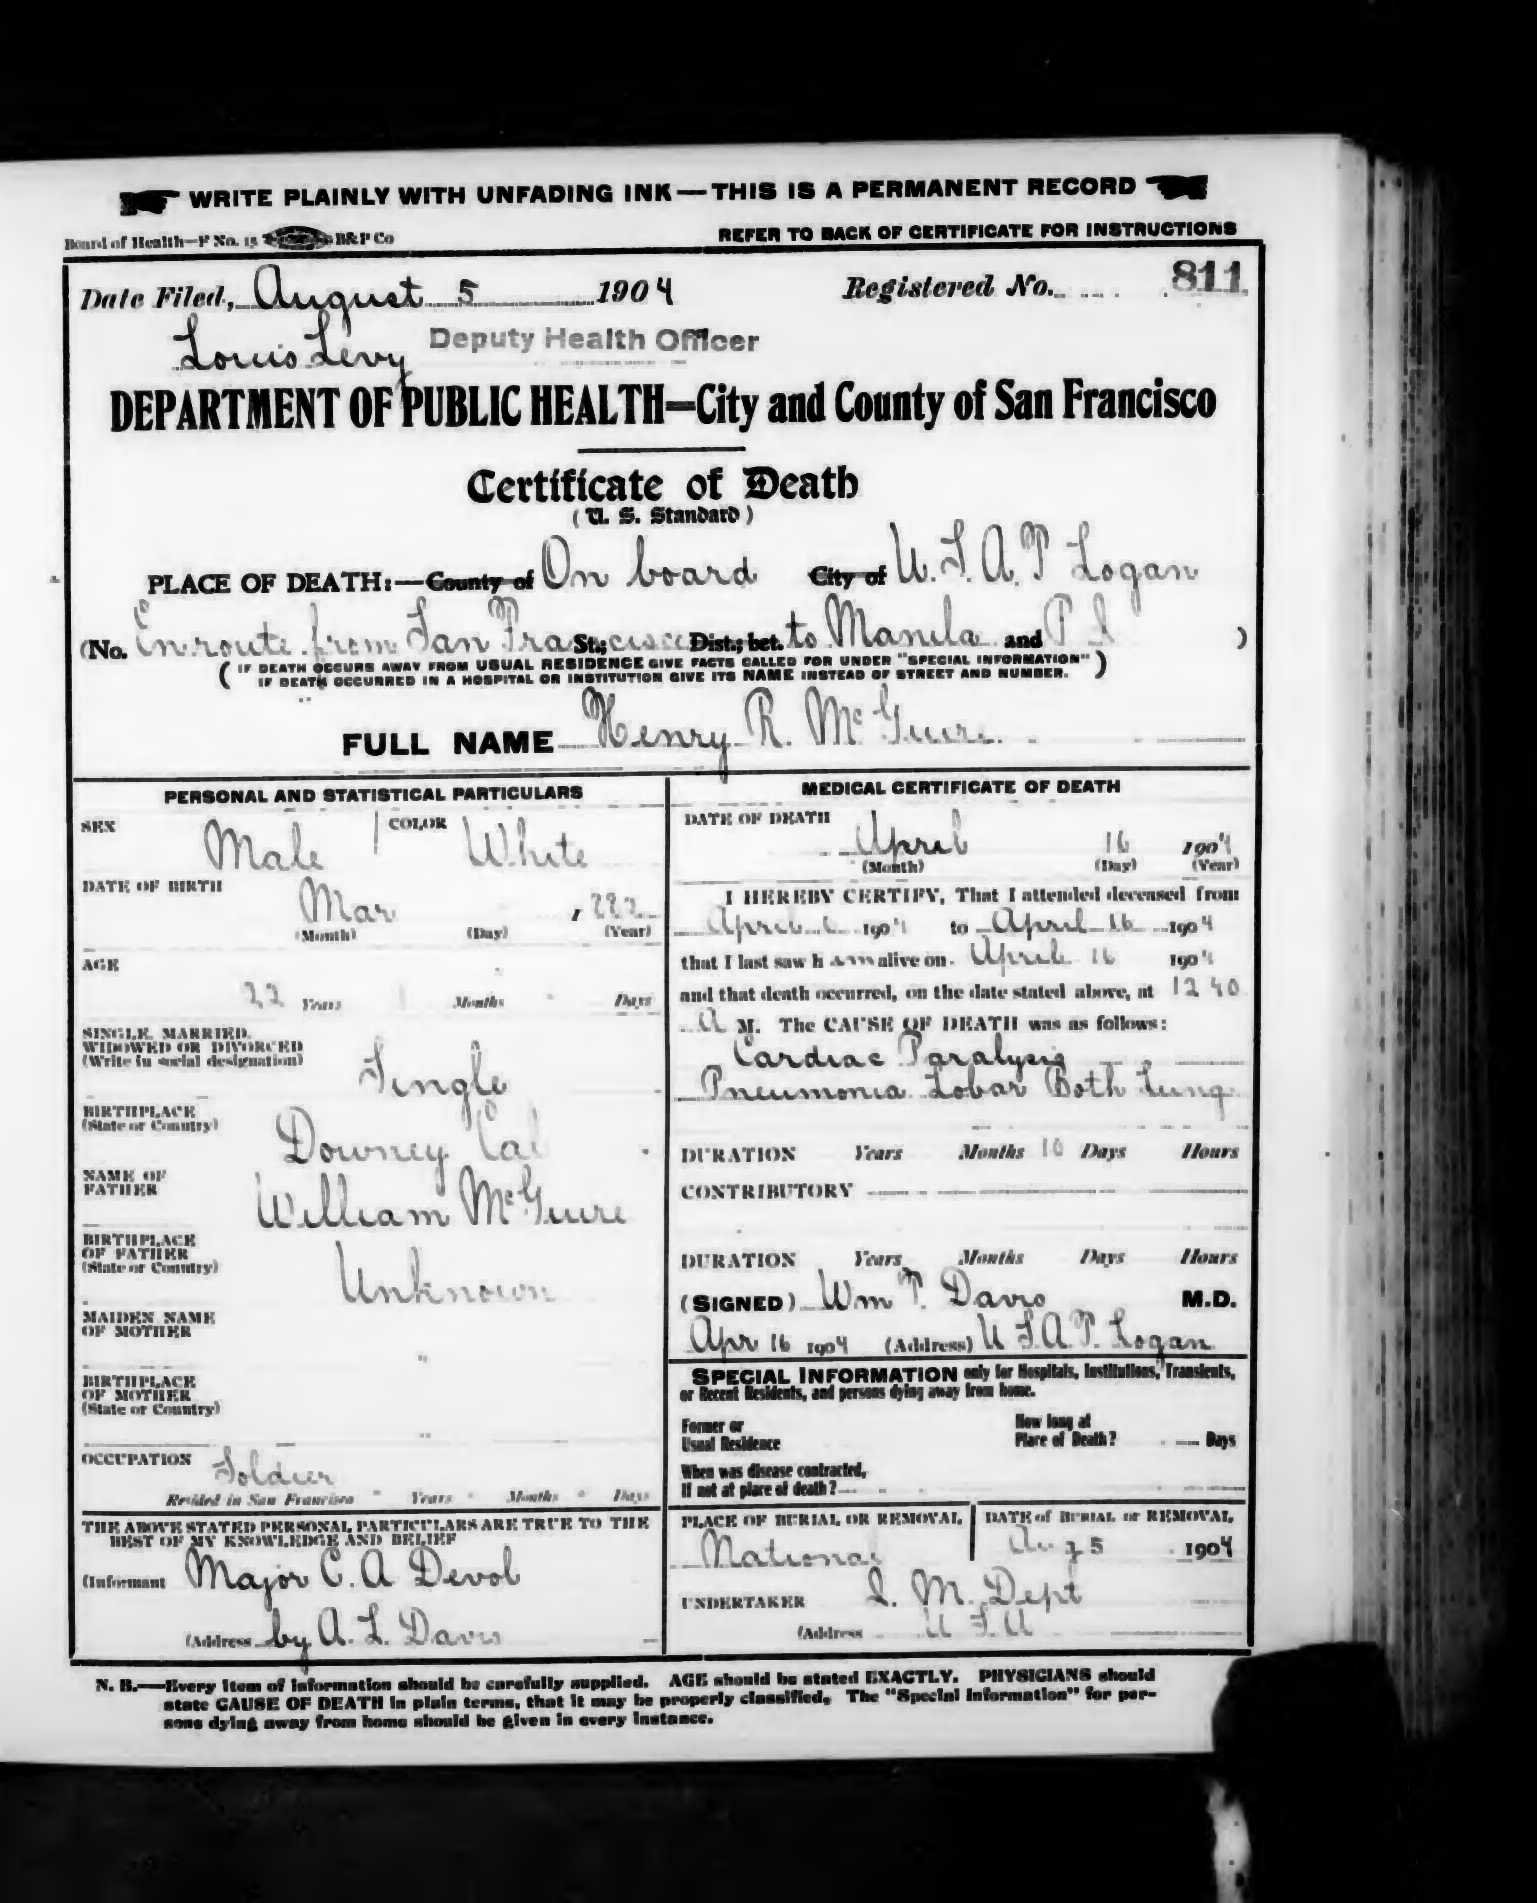 WRITE PLAINLY WITH UNFADING INK—THIS IS A PERMANENT RECORD
Board of Health—P No. 15 B&P Co REFER TO BACK OF CERTIFICATE FOR INSTRUCTIONS
Date Filed, August 5 1904 Registered No. 811
Louis Levy Deputy Health Officer
DEPARTMENT OF PUBLIC HEALTH—City and County of San Francisco
Certificate of Death
(U. S. Standard)
PLACE OF DEATH:—County of On board City of U.S.A.T Logan
(No. En route from San Francisco St.; Dist.; bet. to Manila and P I )
( IF DEATH OCCURS AWAY FROM USUAL RESIDENCE GIVE FACTS CALLED FOR UNDER "SPECIAL INFORMATION" )
IF DEATH OCCURRED IN A HOSPITAL OR INSTITUTION GIVE ITS NAME INSTEAD OF STREET AND NUMBER.
FULL NAME Henry R. McGuire
PERSONAL AND STATISTICAL PARTICULARS
SEX Male COLOR White
DATE OF BIRTH Mar
(Month) (Day) (Year)
AGE
22 Years 1 Months Days
SINGLE, MARRIED,
WIDOWED OR DIVORCED
(Write in social designation) Single
BIRTHPLACE
(State or Country) Downey Cal
NAME OF
FATHER William McGuire
BIRTHPLACE
OF FATHER
(State or Country) Unknown
MAIDEN NAME
OF MOTHER "
BIRTHPLACE
OF MOTHER
(State or Country) "
OCCUPATION Soldier
Resided in San Francisco " Years " Months " Days
THE ABOVE STATED PERSONAL PARTICULARS ARE TRUE TO THE
BEST OF MY KNOWLEDGE AND BELIEF
(Informant Major C. A Devol
(Address by A. L. Davis
MEDICAL CERTIFICATE OF DEATH
DATE OF DEATH
April 16 1904
(Month) (Day) (Year)
I HEREBY CERTIFY, That I attended deceased from
April 6 1904 to April 16 1904
that I last saw h im alive on April 16 1904
and that death occurred, on the date stated above, at 12 40
A M. The CAUSE OF DEATH was as follows:
Cardiac Paralysis
Pneumonia Lobar Both Lung
DURATION Years Months 10 Days Hours
CONTRIBUTORY
DURATION Years Months Days Hours
(SIGNED) Wm T. Davis M.D.
Apr 16 1904 (Address) U S.A.T. Logan
SPECIAL INFORMATION only for Hospitals, Institutions, Transients,
or Recent Residents, and persons dying away from home.
Former or
Usual Residence
How long at
Place of Death? Days
When was disease contracted,
If not at place of death?
PLACE OF BURIAL OR REMOVAL
National
DATE of BURIAL or REMOVAL
Aug 5 1904
UNDERTAKER Q. M. Dept
(Address U S A
N. B.—Every item of information should be carefully supplied. AGE should be stated EXACTLY. PHYSICIANS should
state CAUSE OF DEATH in plain terms, that it may be properly classified. The "Special Information" for per-
sons dying away from home should be given in every instance.